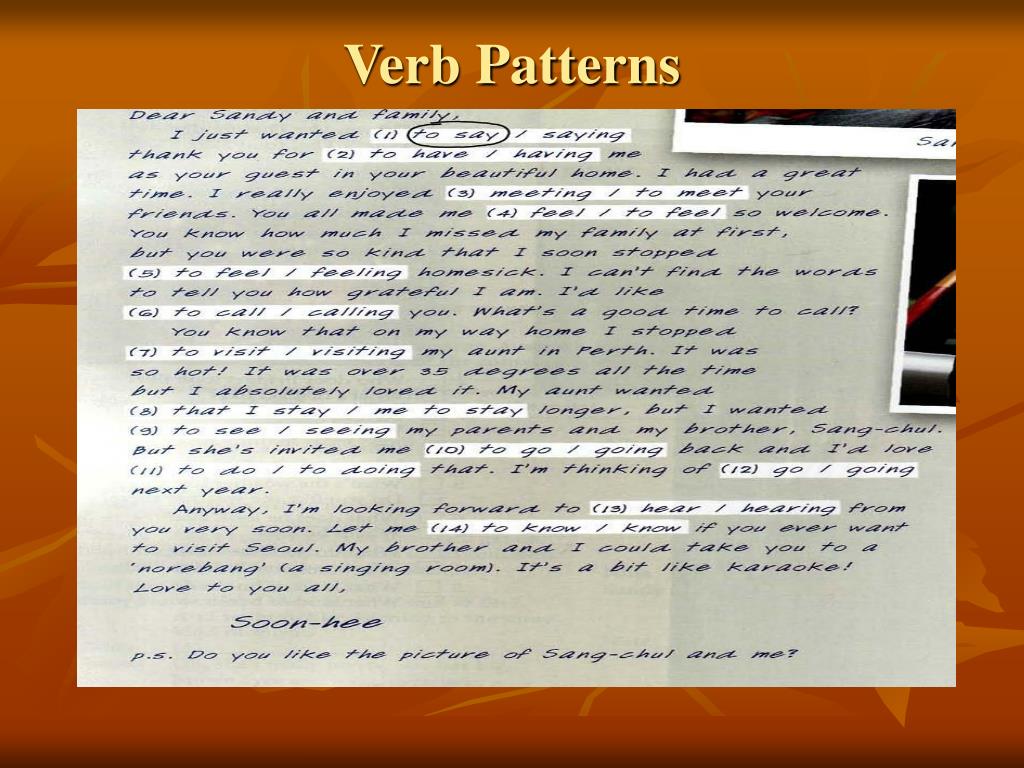 Verb Patterns
Dear Sandy and family,
I just wanted (1) to say / saying
thank you for (2) to have / having me
as your guest in your beautiful home. I had a great
time. I really enjoyed (3) meeting / to meet your
friends. You all made me (4) feel / to feel so welcome.
You know how much I missed my family at first,
but you were so kind that I soon stopped
(5) to feel / feeling homesick. I can't find the words
to tell you how grateful I am. I'd like
(6) to call / calling you. What's a good time to call?
You know that on my way home I stopped
(7) to visit / visiting my aunt in Perth. It was
so hot! It was over 35 degrees all the time
but I absolutely loved it. My aunt wanted
(8) that I stay / me to stay longer, but I wanted
(9) to see / seeing my parents and my brother, Sang-chul.
But she's invited me (10) to go / going back and I'd love
(11) to do / to doing that. I'm thinking of (12) go / going
next year.
Anyway, I'm looking forward to (13) hear / hearing from
you very soon. Let me (14) to know / know if you ever want
to visit Seoul. My brother and I could take you to a
'norebang' (a singing room). It's a bit like karaoke!
Love to you all,
Soon-hee
p.s. Do you like the picture of Sang-chul and me?